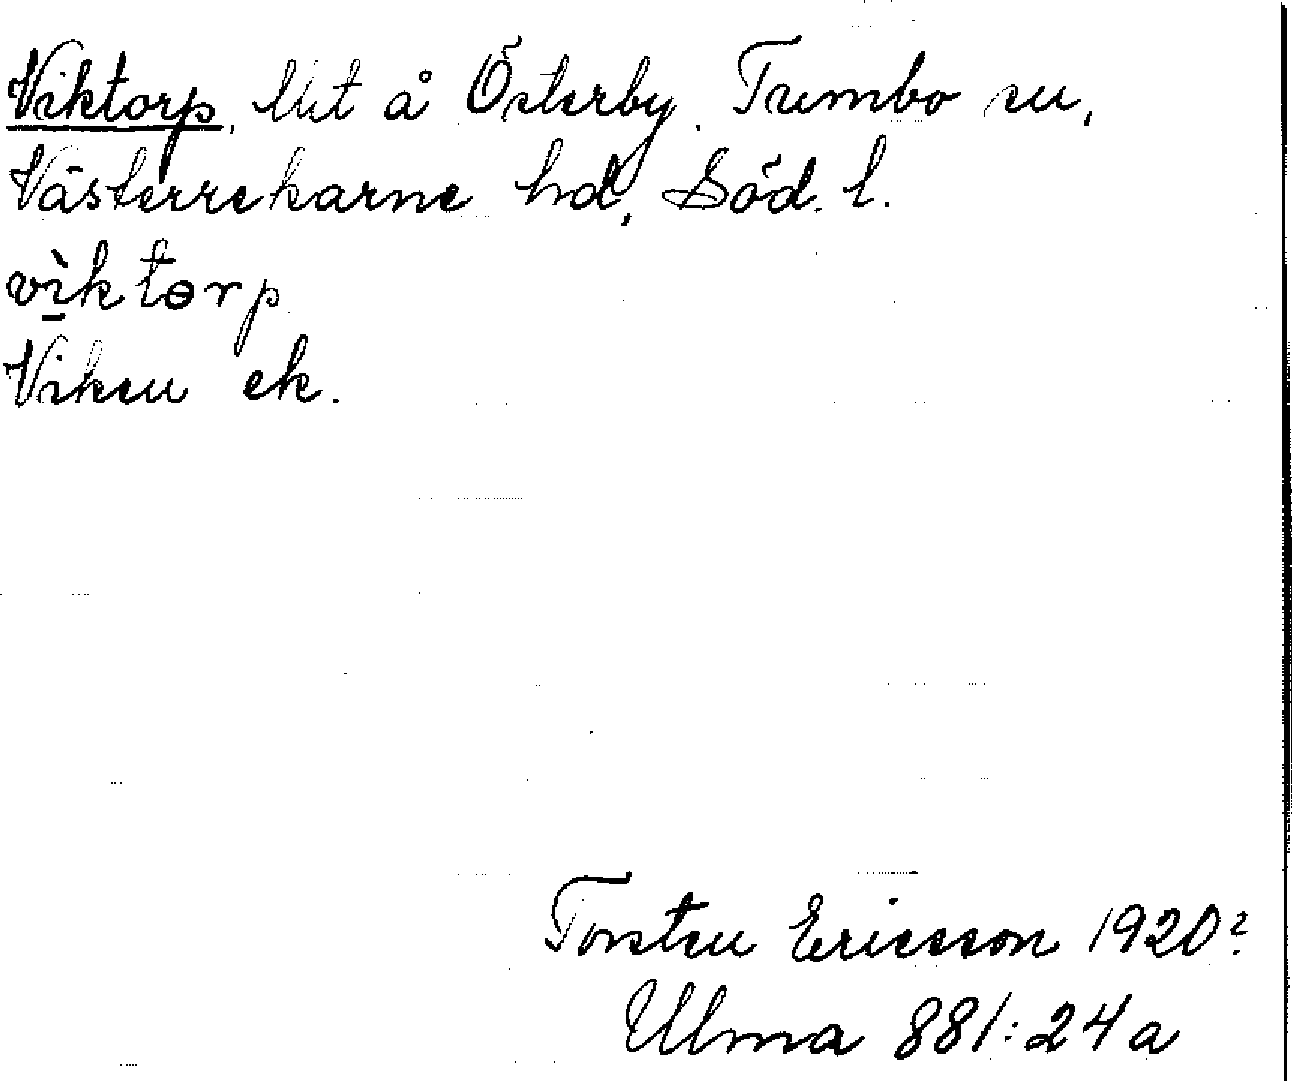 Viktorp, Utt å Österby. Tumbo sn,
Västerrekarne hd, Söd. l.
vìktɵrp
Viken ek.
Torsten Ericsson 1920?
Ulma 881:24a